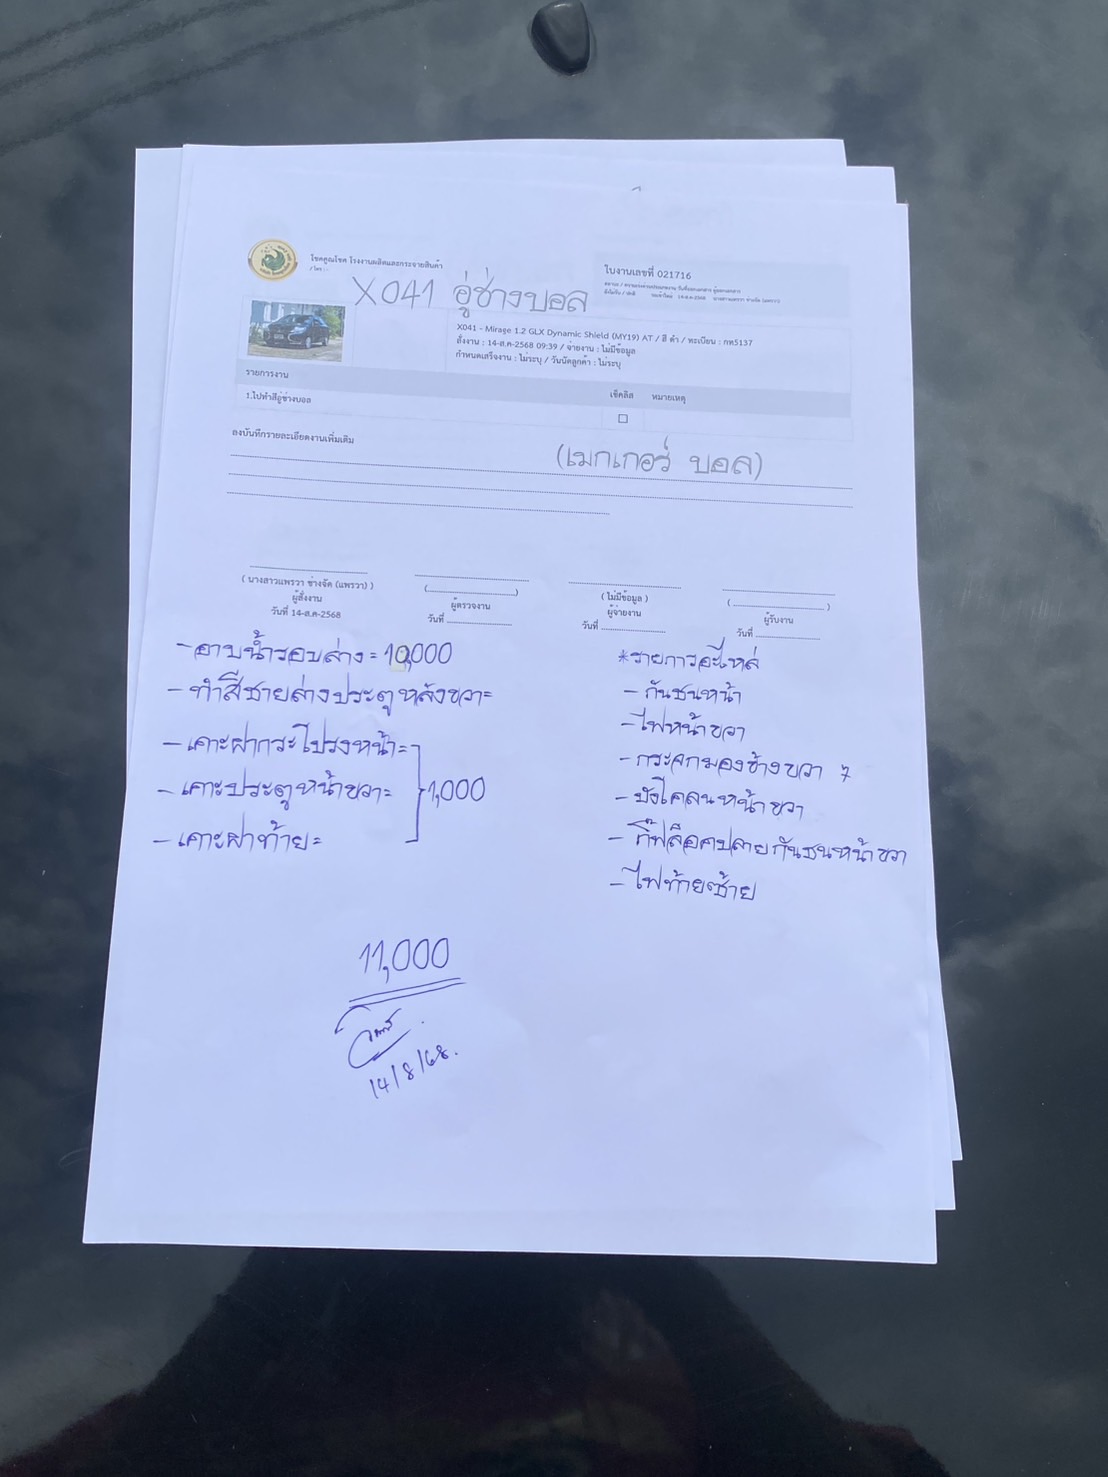 โชคคูณโชค โรงงานผลิตและกระจายสินค้า
/ โทร : -
ใบงานเลขที่ 021716
X041 อู่ช่างบอล
X041 - Mirage 1.2 GLX Dynamic Shield (MY19) AT / สี ดำ / ทะเบียน : กท5137
สั่งงาน : 14-ส.ค-2568 09:39 / จ่ายงาน : ไม่มีข้อมูล
กำหนดเสร็จงาน : ไม่ระบุ / วันนัดลูกค้า : ไม่ระบุ
รายการงาน เช็คลิส หมายเหตุ
1.ไปทำสีอู่ช่างบอล
ลงบันทึกรายละเอียดงานเพิ่มเติม
(เมกเกอร์ บอล)
( นางสาวแพรวา ช่างจัด (แพรวา) )
ผู้สั่งงาน
วันที่ 14-ส.ค-2568
ผู้ตรวจงาน
วันที่
( ไม่มีข้อมูล )
ผู้จ่ายงาน
วันที่
ผู้รับงาน
วันที่
- อาบน้ำรอบล่าง = 10,000
- ทำสีชายล่างประตูหลังขวา =
- เคาะฝากระโปรงหน้า =
- เคาะประตูหน้าขวา = 1,000
- เคาะฝาท้าย =
*รายการอะไหล่
- กันชนหน้า
- ไฟหน้าขวา
- กระจกมองข้างขวา
- บังโคลนหน้าขวา
- กิ๊ฟล็อคปลายกันชนหน้าขวา
- ไฟท้ายซ้าย
11,000
14/8/68.